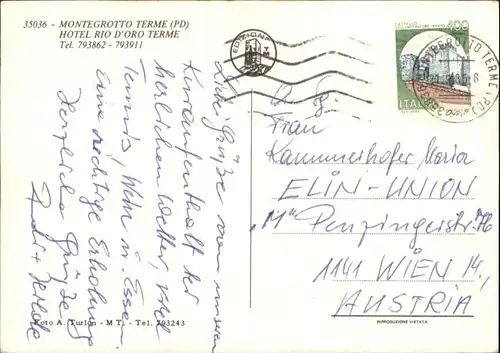 35036 - MONTEGROTTO TERME (PD)
HOTEL RIO D'ORO TERME
Tel. 793862 - 793911
Liebe Grüße von unserem
Kuraufenthalt bei
herrlichem Wetter, viel
Tennis, Wein u. Essen
Eine richtige Erholung
Herzliche Grüße
Foto A. Turlon - M T. - Tel. 793243
EDIZIONE
400
ITALIA
MONTEGROTTO TERME (PD)
Frau
Kammerhofer Maria
ELIN-UNION
"M" Penzingerstr.
1141 WIEN 14,
AUSTRIA
RIPRODUZIONE VIETATA